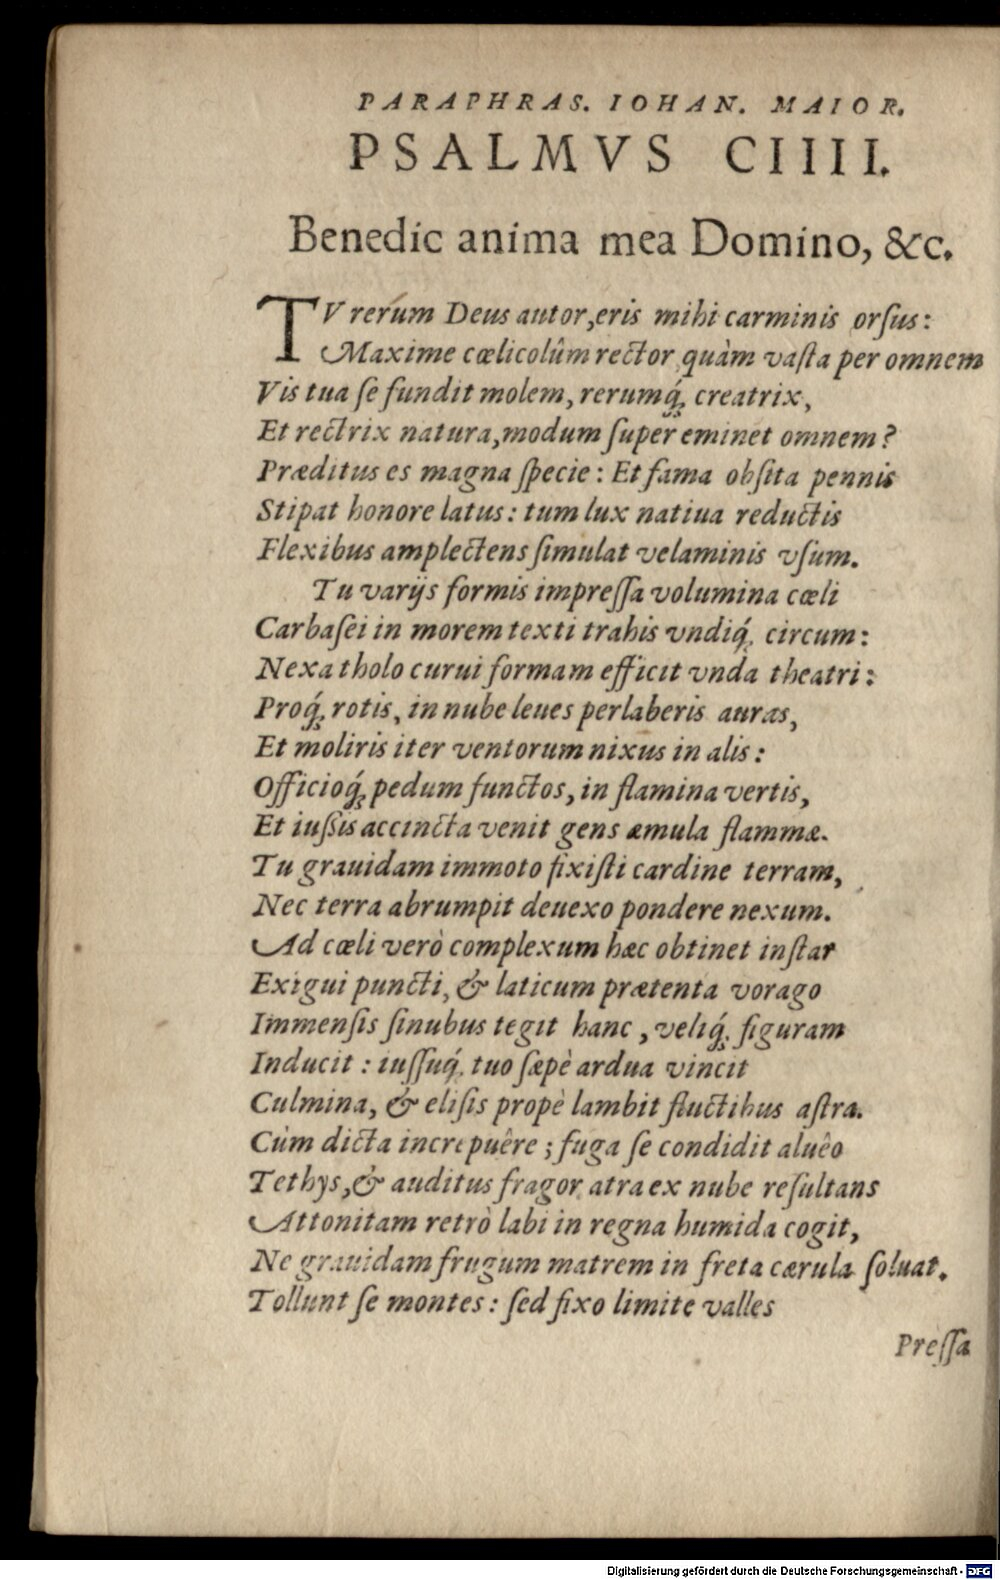 PARAPHRAS. IOHAN. MAIOR.
PSALMVS CIIII.
Benedic anima mea Domino, &c.
TV rerum Deus autor, eris mihi carminis orſus:
Maxime cœlicolûm rector quàm vaſta per omnem
Vis tua ſe fundit molem, rerumq́; creatrix,
Et rectrix natura, modum ſuper eminet omnem?
Præditus es magna ſpecie: Et fama obſita pennis
Stipat honore latus: tum lux natiua reductis
Flexibus amplectens ſimulat velaminis vſum.
Tu varijs formis impreſſa volumina cœli
Carbaſei in morem texti trahis vndiq́; circum:
Nexa tholo curui formam efficit vnda theatri:
Proq́; rotis, in nube leues perlaberis auras,
Et moliris iter ventorum nixus in alis:
Officioq́; pedum functos, in flamina vertis,
Et iuſsis accincta venit gens æmula flammæ.
Tu grauidam immoto fixiſti cardine terram,
Nec terra abrumpit deuexo pondere nexum.
Ad cœli verò complexum hæc obtinet inſtar
Exigui puncti, & laticum prætenta vorago
Immenſis ſinubus tegit hanc, veliq́; figuram
Inducit: iuſſuq́; tuo ſæpè ardua vincit
Culmina, & eliſis propè lambit fluctibus aſtra.
Cùm dicta increpuêre; fuga ſe condidit aluêo
Tethys, & auditus fragor atra ex nube reſultans
Attonitam retrò labi in regna humida cogit,
Ne grauidam frugum matrem in freta cærula ſoluat.
Tollunt ſe montes: ſed fixo limite valles
Preſſa
Digitalisierung gefördert durch die Deutsche Forschungsgemeinschaft - DFG